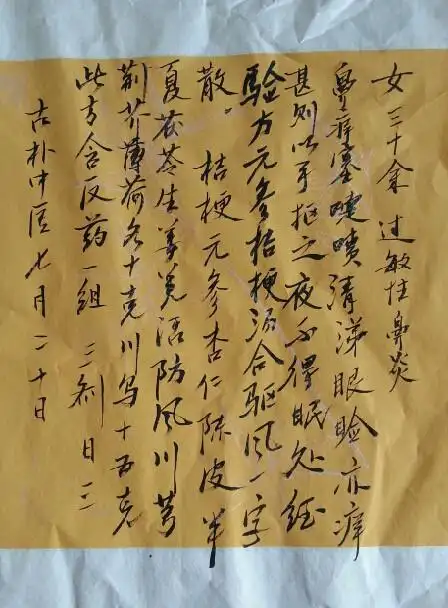 女三十余 过敏性鼻炎
鼻痒塞喷嚏清涕眼睑亦痒
甚则以手抠之夜不得眠处经
验方元参桔梗汤合驱风一字
散。桔梗元参杏仁陈皮半
夏茯苓生姜羌活防风川芎
荆芥薄荷各十克川乌十五克
此方含反药一组 三剂 日三
古朴中医七月二十日